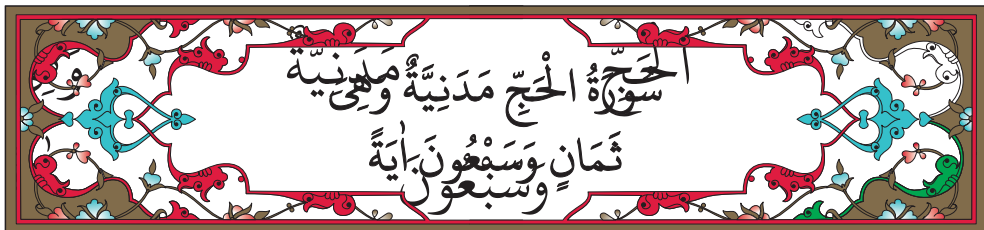 سُورَةُ الْحَجِّ مَدَنِيَّةٌ وَهِىَ
ثَمَانٍ وَسَبْعُونَ اٰيَةً